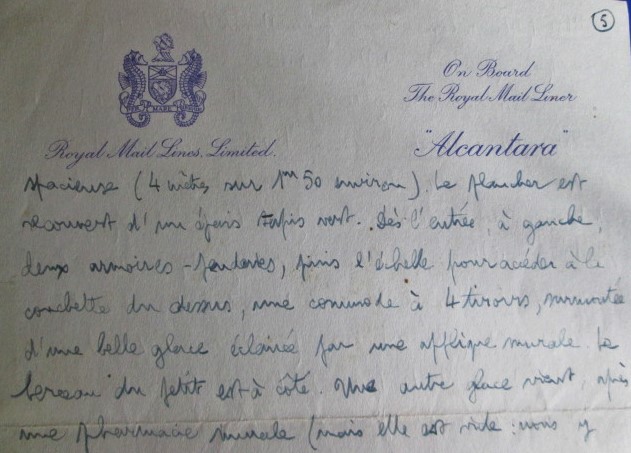 5
On Board
The Royal Mail Liner
Royal Mail Lines, Limited.
"Alcantara"
spacieuse (4 mètres sur 1m 50 environ). Le plancher est
recouvert d'un épais tapis vert. Dès l'entrée, à gauche,
deux armoires-penderies, puis l'échelle pour accéder à la
couchette du dessus, une commode à 4 tiroirs, surmontée
d'une belle glace éclairée par une applique murale. Le
berceau du petit est à côté. Une autre glace vient, après
une pharmacie murale (mais elle est vide : nous y